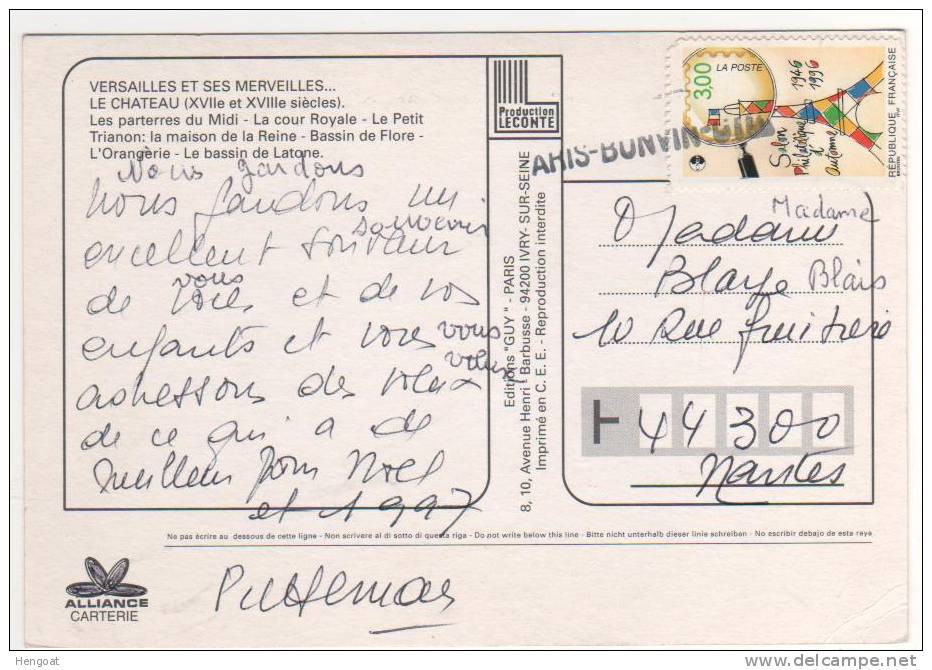 VERSAILLES ET SES MERVEILLES...
LE CHATEAU (XVIIe et XVIIIe siècles).
Les parterres du Midi - La cour Royale - Le Petit
Trianon: la maison de la Reine - Bassin de Flore -
L'Orangerie - Le bassin de Latone.
Nous gardons
Nous gardons un
souvenir
excellent souvenir
vous
de vous et de vos
enfants et vous vous
voeux
adressons des voeux
de ce qui a de
meilleur pour Noel
et 1997
Production
LECONTE
Editions "GUY" - PARIS
8, 10, Avenue Henri Barbusse - 94200 IVRY-SUR-SEINE
Imprimé en C. E. E. - Reproduction interdite
ARIS-BONVIN
3,00
LA POSTE
1946
1996
Salon
Philatélique
d'
automne
RÉPUBLIQUE FRANÇAISE
Madame
Madame
Blaye Blais
10 Rue fruitière
44300
Nantes
Ne pas écrire au dessous de cette ligne - Non scrivere al di sotto di questa riga - Do not write below this line - Bitte nicht unterhalb dieser linie schreiben - No escribir debajo de este raya
ALLIANCE
CARTERIE
Hengoat
delcampe.net